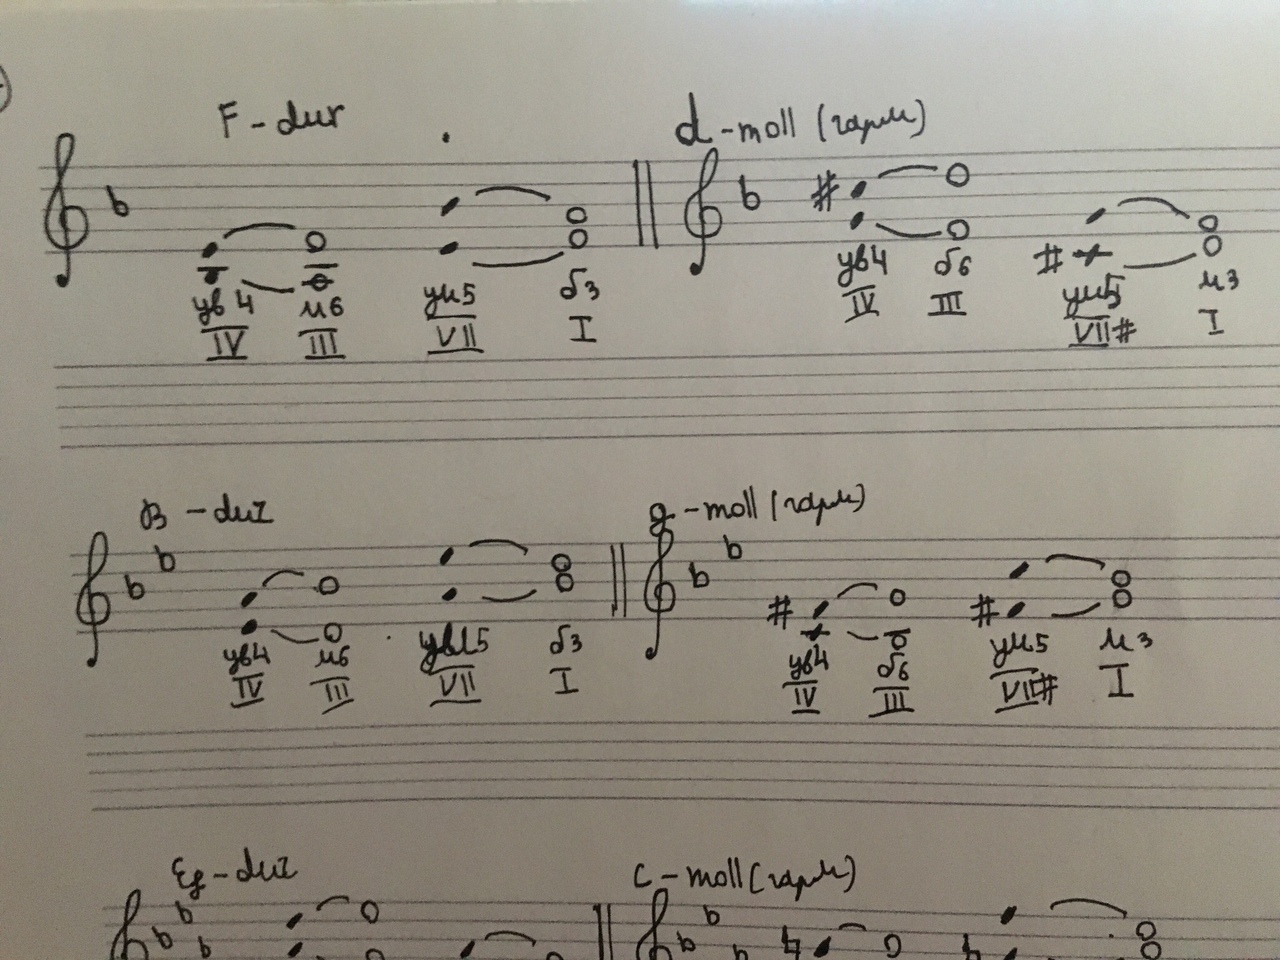 F-dur d-moll (гарм)
ув4 м6 ум5 б3 ув4 б6 ум5 м3
IV III VII I IV III VII# I
B-dur g-moll (гарм)
ув4 м6 ум5 б3 ув4 б6 ум5 м3
IV III VII I IV III VII# I
Es-dur c-moll (гарм)